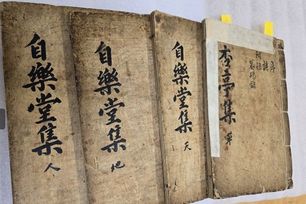 自樂堂集 人
自樂堂集 地
自樂堂集 天
亭集